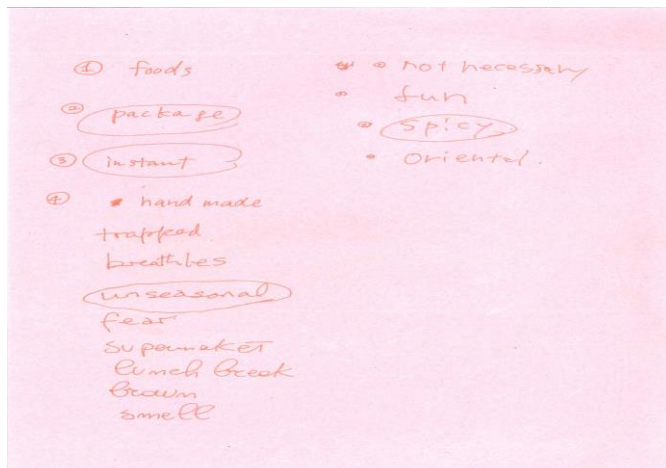 ① foods
② package
③ instant
④ • hand made
trapped
breathles
unseasonal
fear
supermaket
lunch break
brown
smell
• not necessary
• fun
• Spicy
• Oriental.